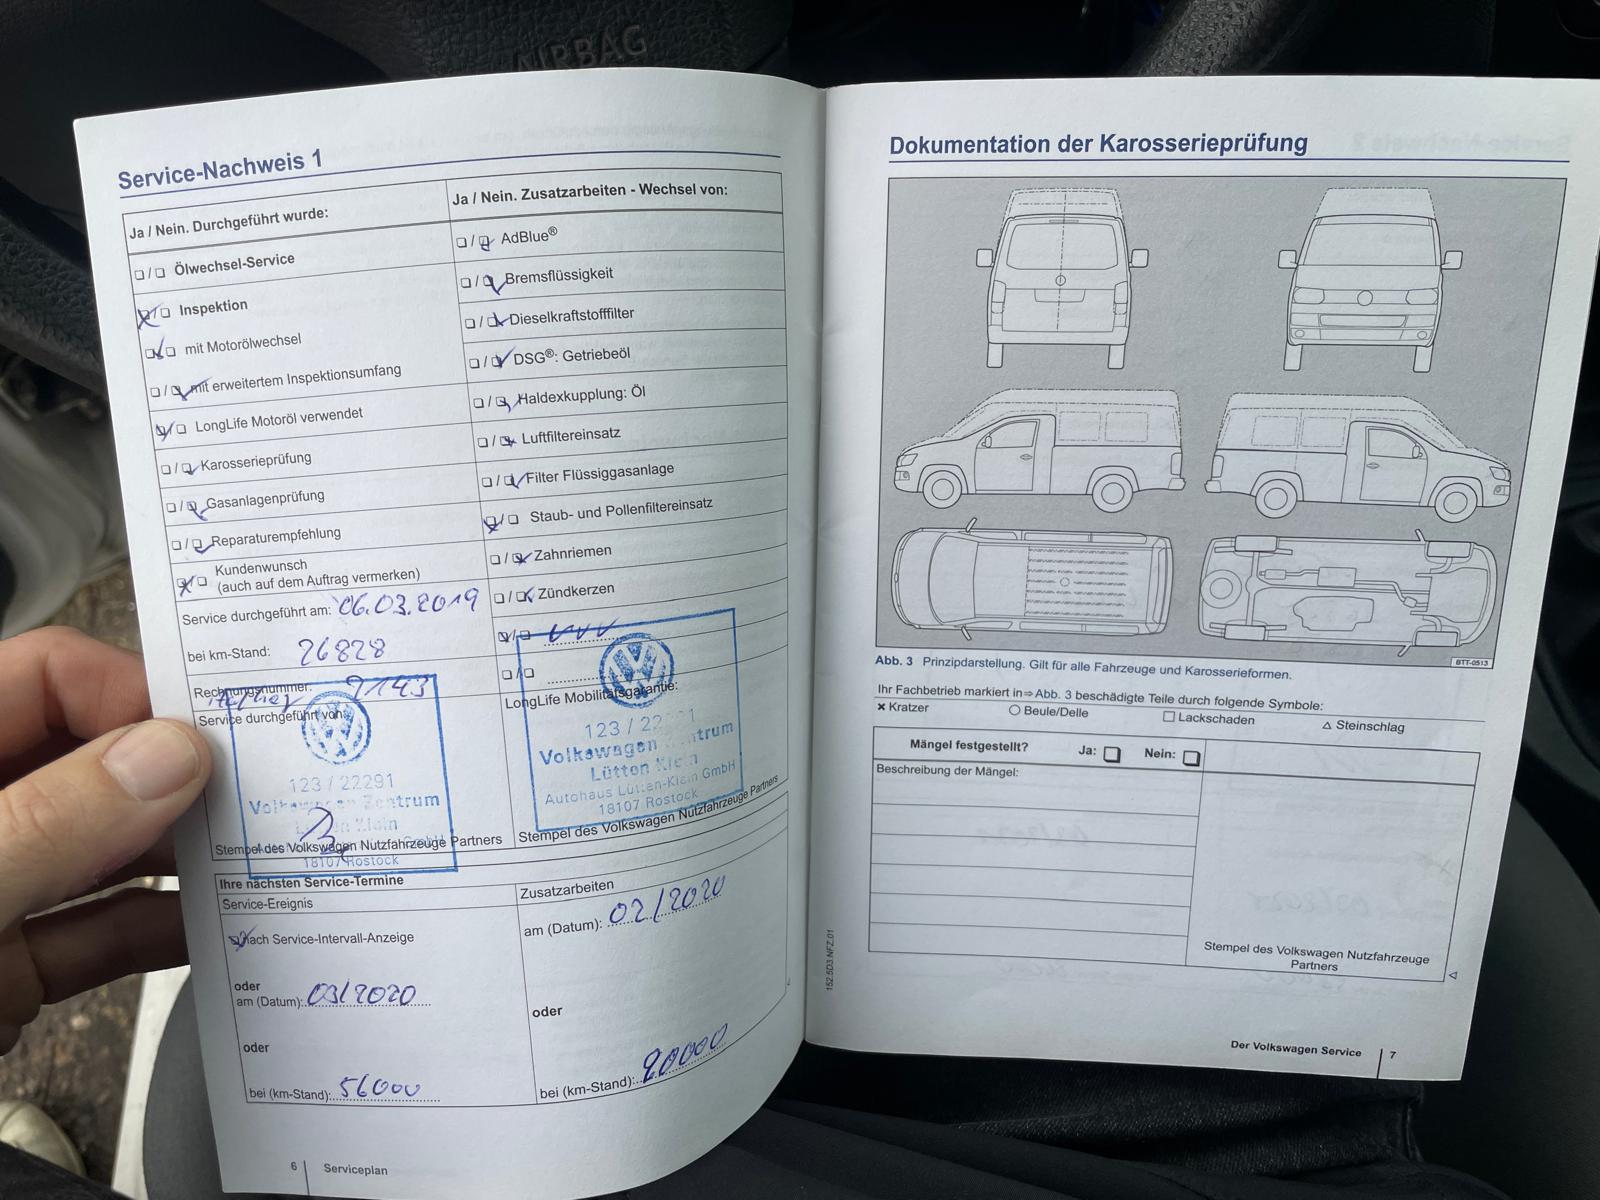 AIRBAG
Service-Nachweis 1
Ja / Nein. Durchgeführt wurde:
❏ / ❏ Ölwechsel-Service
❏ / ❏ Inspektion
❏ / ❏ mit Motorölwechsel
❏ / ❏ mit erweitertem Inspektionsumfang
❏ / ❏ LongLife Motoröl verwendet
❏ / ❏ Karosserieprüfung
❏ / ❏ Gasanlagenprüfung
❏ / ❏ Reparaturempfehlung
❏ / ❏ Kundenwunsch
(auch auf dem Auftrag vermerken)
Service durchgeführt am: 06.03.2019
bei km-Stand: 26828
Rechnungsnummer: 9143
Service durchgeführt von:
123 / 22291
Volkswagen Zentrum
Lütten Klein
18107 Rostock
Stempel des Volkswagen Nutzfahrzeuge Partners
Ja / Nein. Zusatzarbeiten - Wechsel von:
❏ / ❏ AdBlue®
❏ / ❏ Bremsflüssigkeit
❏ / ❏ Dieselkraftstofffilter
❏ / ❏ DSG®: Getriebeöl
❏ / ❏ Haldexkupplung: Öl
❏ / ❏ Luftfiltereinsatz
❏ / ❏ Filter Flüssiggasanlage
❏ / ❏ Staub- und Pollenfiltereinsatz
❏ / ❏ Zahnriemen
❏ / ❏ Zündkerzen
❏ / ❏
❏ / ❏
LongLife Mobilitätsgarantie:
123 / 22291
Volkswagen Zentrum
Lütten Klein
Autohaus Lütten-Klein GmbH
18107 Rostock
Stempel des Volkswagen Nutzfahrzeuge Partners
Ihre nächsten Service-Termine
Service-Ereignis
❏ nach Service-Intervall-Anzeige
oder
am (Datum): 03/2020
oder
bei (km-Stand): 56000
Zusatzarbeiten
am (Datum): 02/2020
oder
bei (km-Stand): 90000
6 Serviceplan
Dokumentation der Karosserieprüfung
BTT-0513
Abb. 3 Prinzipdarstellung. Gilt für alle Fahrzeuge und Karosserieformen.
Ihr Fachbetrieb markiert in ⇒ Abb. 3 beschädigte Teile durch folgende Symbole:
✖ Kratzer ○ Beule/Delle □ Lackschaden △ Steinschlag
Mängel festgestellt? Ja: ❏ Nein: ❏
Beschreibung der Mängel:
Stempel des Volkswagen Nutzfahrzeuge
Partners
152.5D3.NFZ.01
Der Volkswagen Service 7